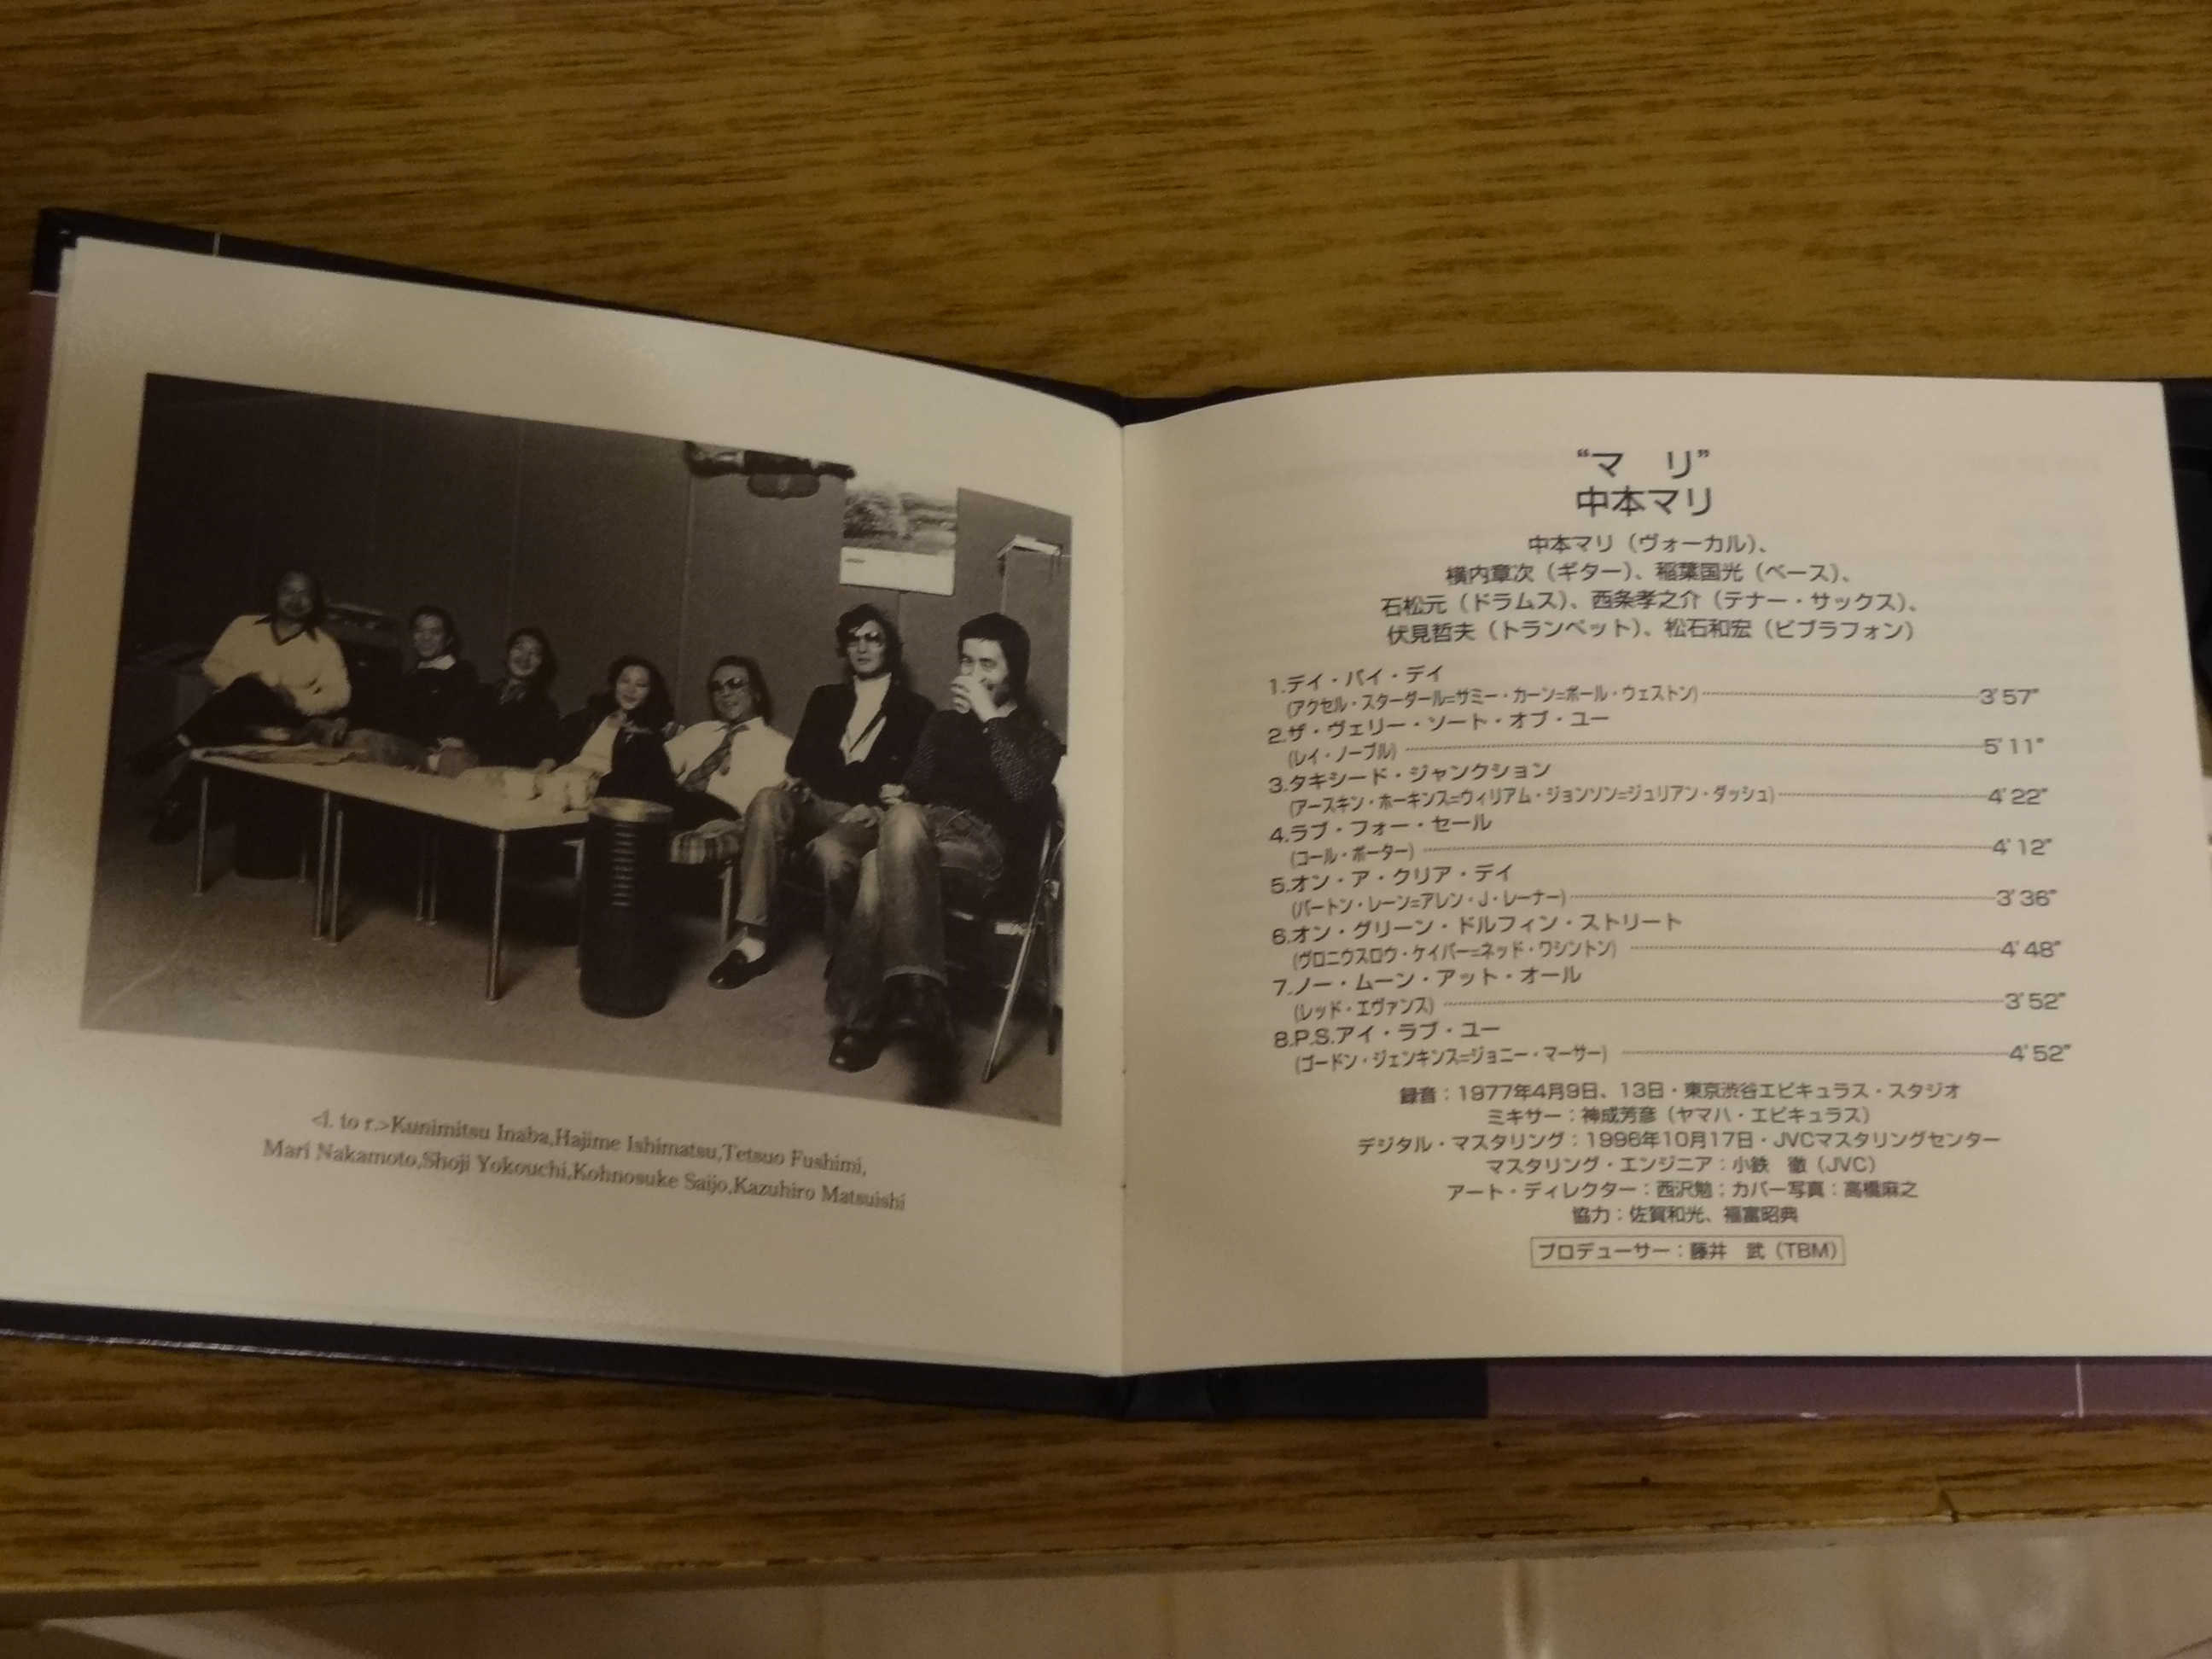 <l. to r.>Kunimitsu Inaba,Hajime Ishimatsu,Tetsuo Fushimi,
Mari Nakamoto,Shoji Yokouchi,Kohnosuke Saijo,Kazuhiro Matsuishi
“マ　リ”
中本マリ
中本マリ（ヴォーカル）、
横内章次（ギター）、稲葉国光（ベース）、
石松元（ドラムス）、西条孝之介（テナー・サックス）、
伏見哲夫（トランペット）、松石和宏（ビブラフォン）
1.デイ・バイ・デイ
(アクセル・スタ－ダール=サミー・カーン=ポール・ウェストン) 3'57"
2.ザ・ヴェリー・ソート・オブ・ユー
(レイ・ノーブル) 5'11"
3.タキシード・ジャンクション
(アースキン・ホーキンス=ウィリアム・ジョンソン=ジュリアン・ダッシュ) 4'22"
4.ラブ・フォー・セール
(コール・ポーター) 4'12"
5.オン・ア・クリア・デイ
(バートン・レーン=アレン・J・レーナー) 3'36"
6.オン・グリーン・ドルフィン・ストリート
(ヴロニウスロウ・ケイパー=ネッド・ワシントン) 4'48"
7.ノー・ムーン・アット・オール
(レッド・エヴァンス) 3'52"
8.P.S.アイ・ラブ・ユー
(ゴードン・ジェンキンス=ジョニー・マーサー) 4'52"
録音：1977年4月9日、13日・東京渋谷エピキュラス・スタジオ
ミキサー：神成芳彦（ヤマハ・エピキュラス）
デジタル・マスタリング：1996年10月17日・JVCマスタリングセンター
マスタリング・エンジニア：小鉄　徹（JVC）
アート・ディレクター：西沢勉；カバー写真：高橋麻之
協力：佐賀和光、福富昭典
プロデューサー：藤井　武（TBM）